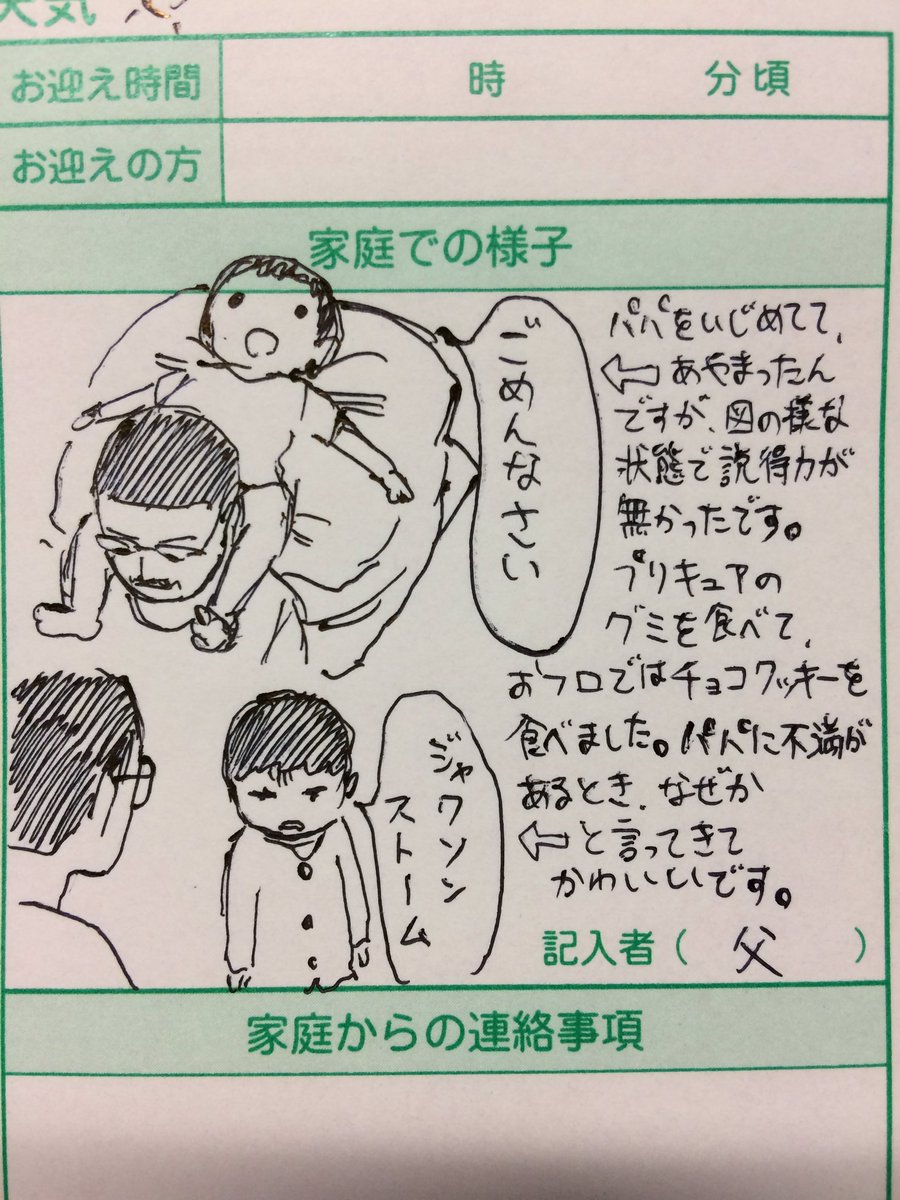 天気
お迎え時間 時 分頃
お迎えの方
家庭での様子
ごめんなさい
パパをいじめてて、
⇦あやまったん
ですが、図の様な
状態で説得力が
無かったです。
プリキュアの
グミを食べて、
おフロではチョコクッキーを
食べました。パパに不満が
あるとき、なぜか
⇦と言ってきて
かわいいです。
ジャクソン
ストーム
記入者(父)
家庭からの連絡事項